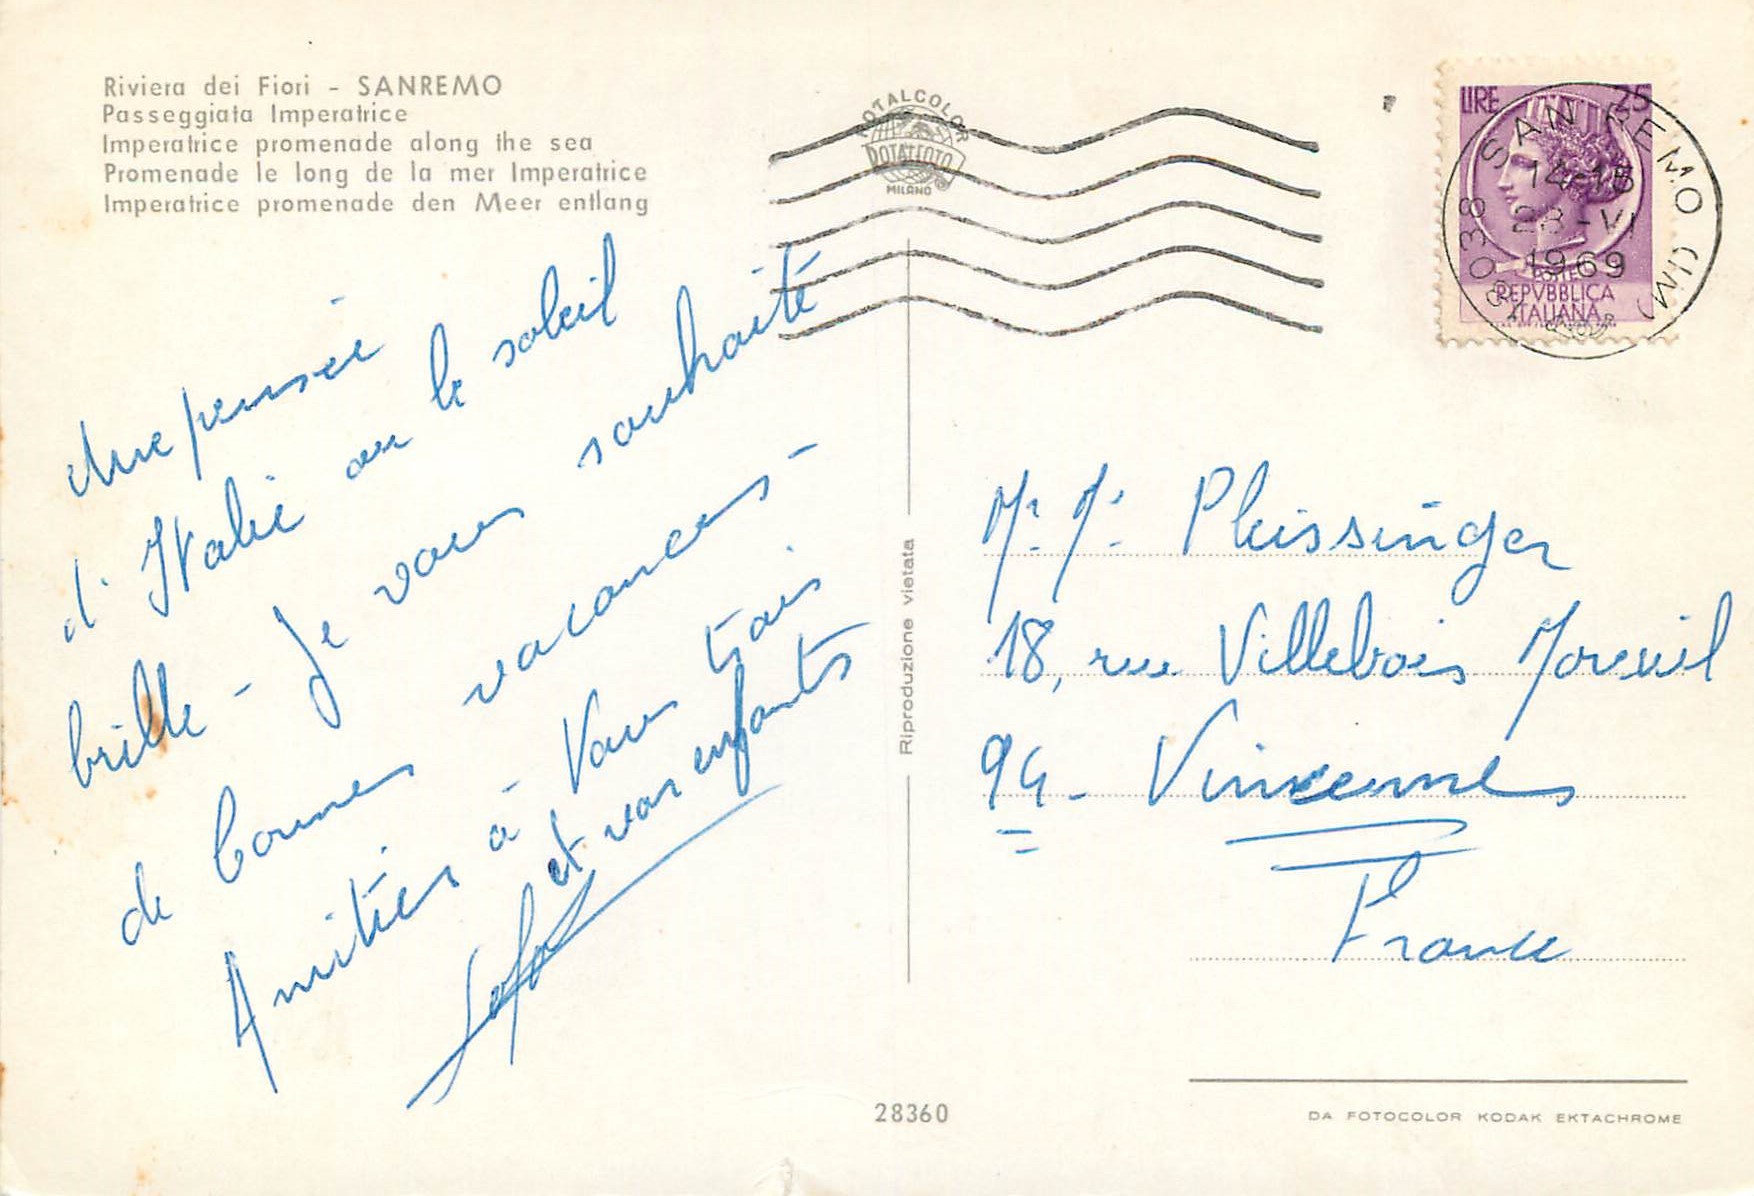 Riviera dei Fiori - SANREMO
Passeggiata Imperatrice
Imperatrice promenade along the sea
Promenade le long de la mer Imperatrice
Imperatrice promenade den Meer entlang
ROTALCOLOR
ROTALFOTO
MILANO
LIRE 25
POSTE
REPVBBLICA
ITALIANA
SAN REMO (IM)
18038
14-15
23-VI
1969
Une pensée
d'Italie où le soleil
brille - Je vous souhaite
de bonnes vacances -
Amitiés à Vous trois
et vos enfants
Mr. Pleissinger
18, rue Villebois Moreuil
94 - Vincennes
France
Riproduzione vietata
28360
DA FOTOCOLOR KODAK EKTACHROME